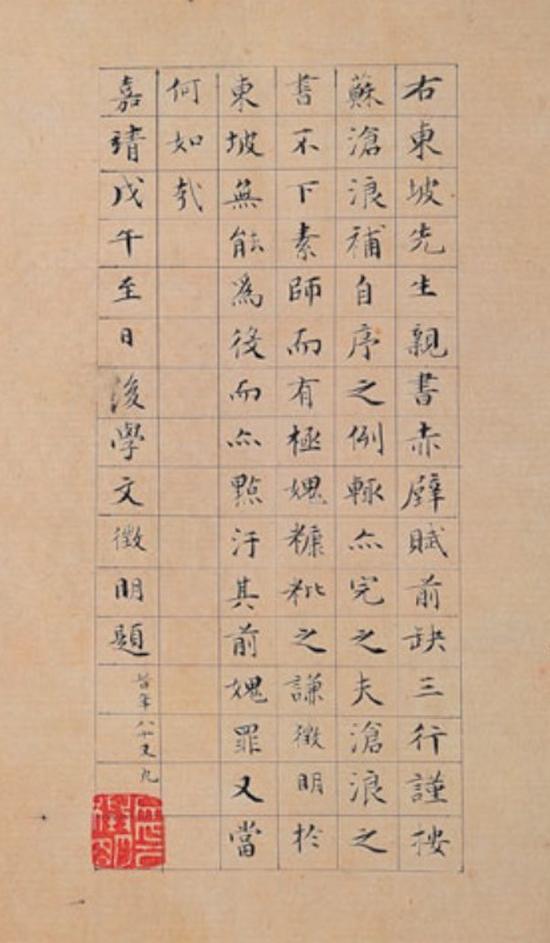 右東坡先生親書赤壁賦前缺三行謹按
蘇滄浪補自序之例輒亦完之夫滄浪之
書不下素師而有極媿糠粃之謙徵明於
東坡無能爲後而亦點汙其前媿罪又當
何如哉
嘉靖戊午至日後學文徵明題旹年八十又九